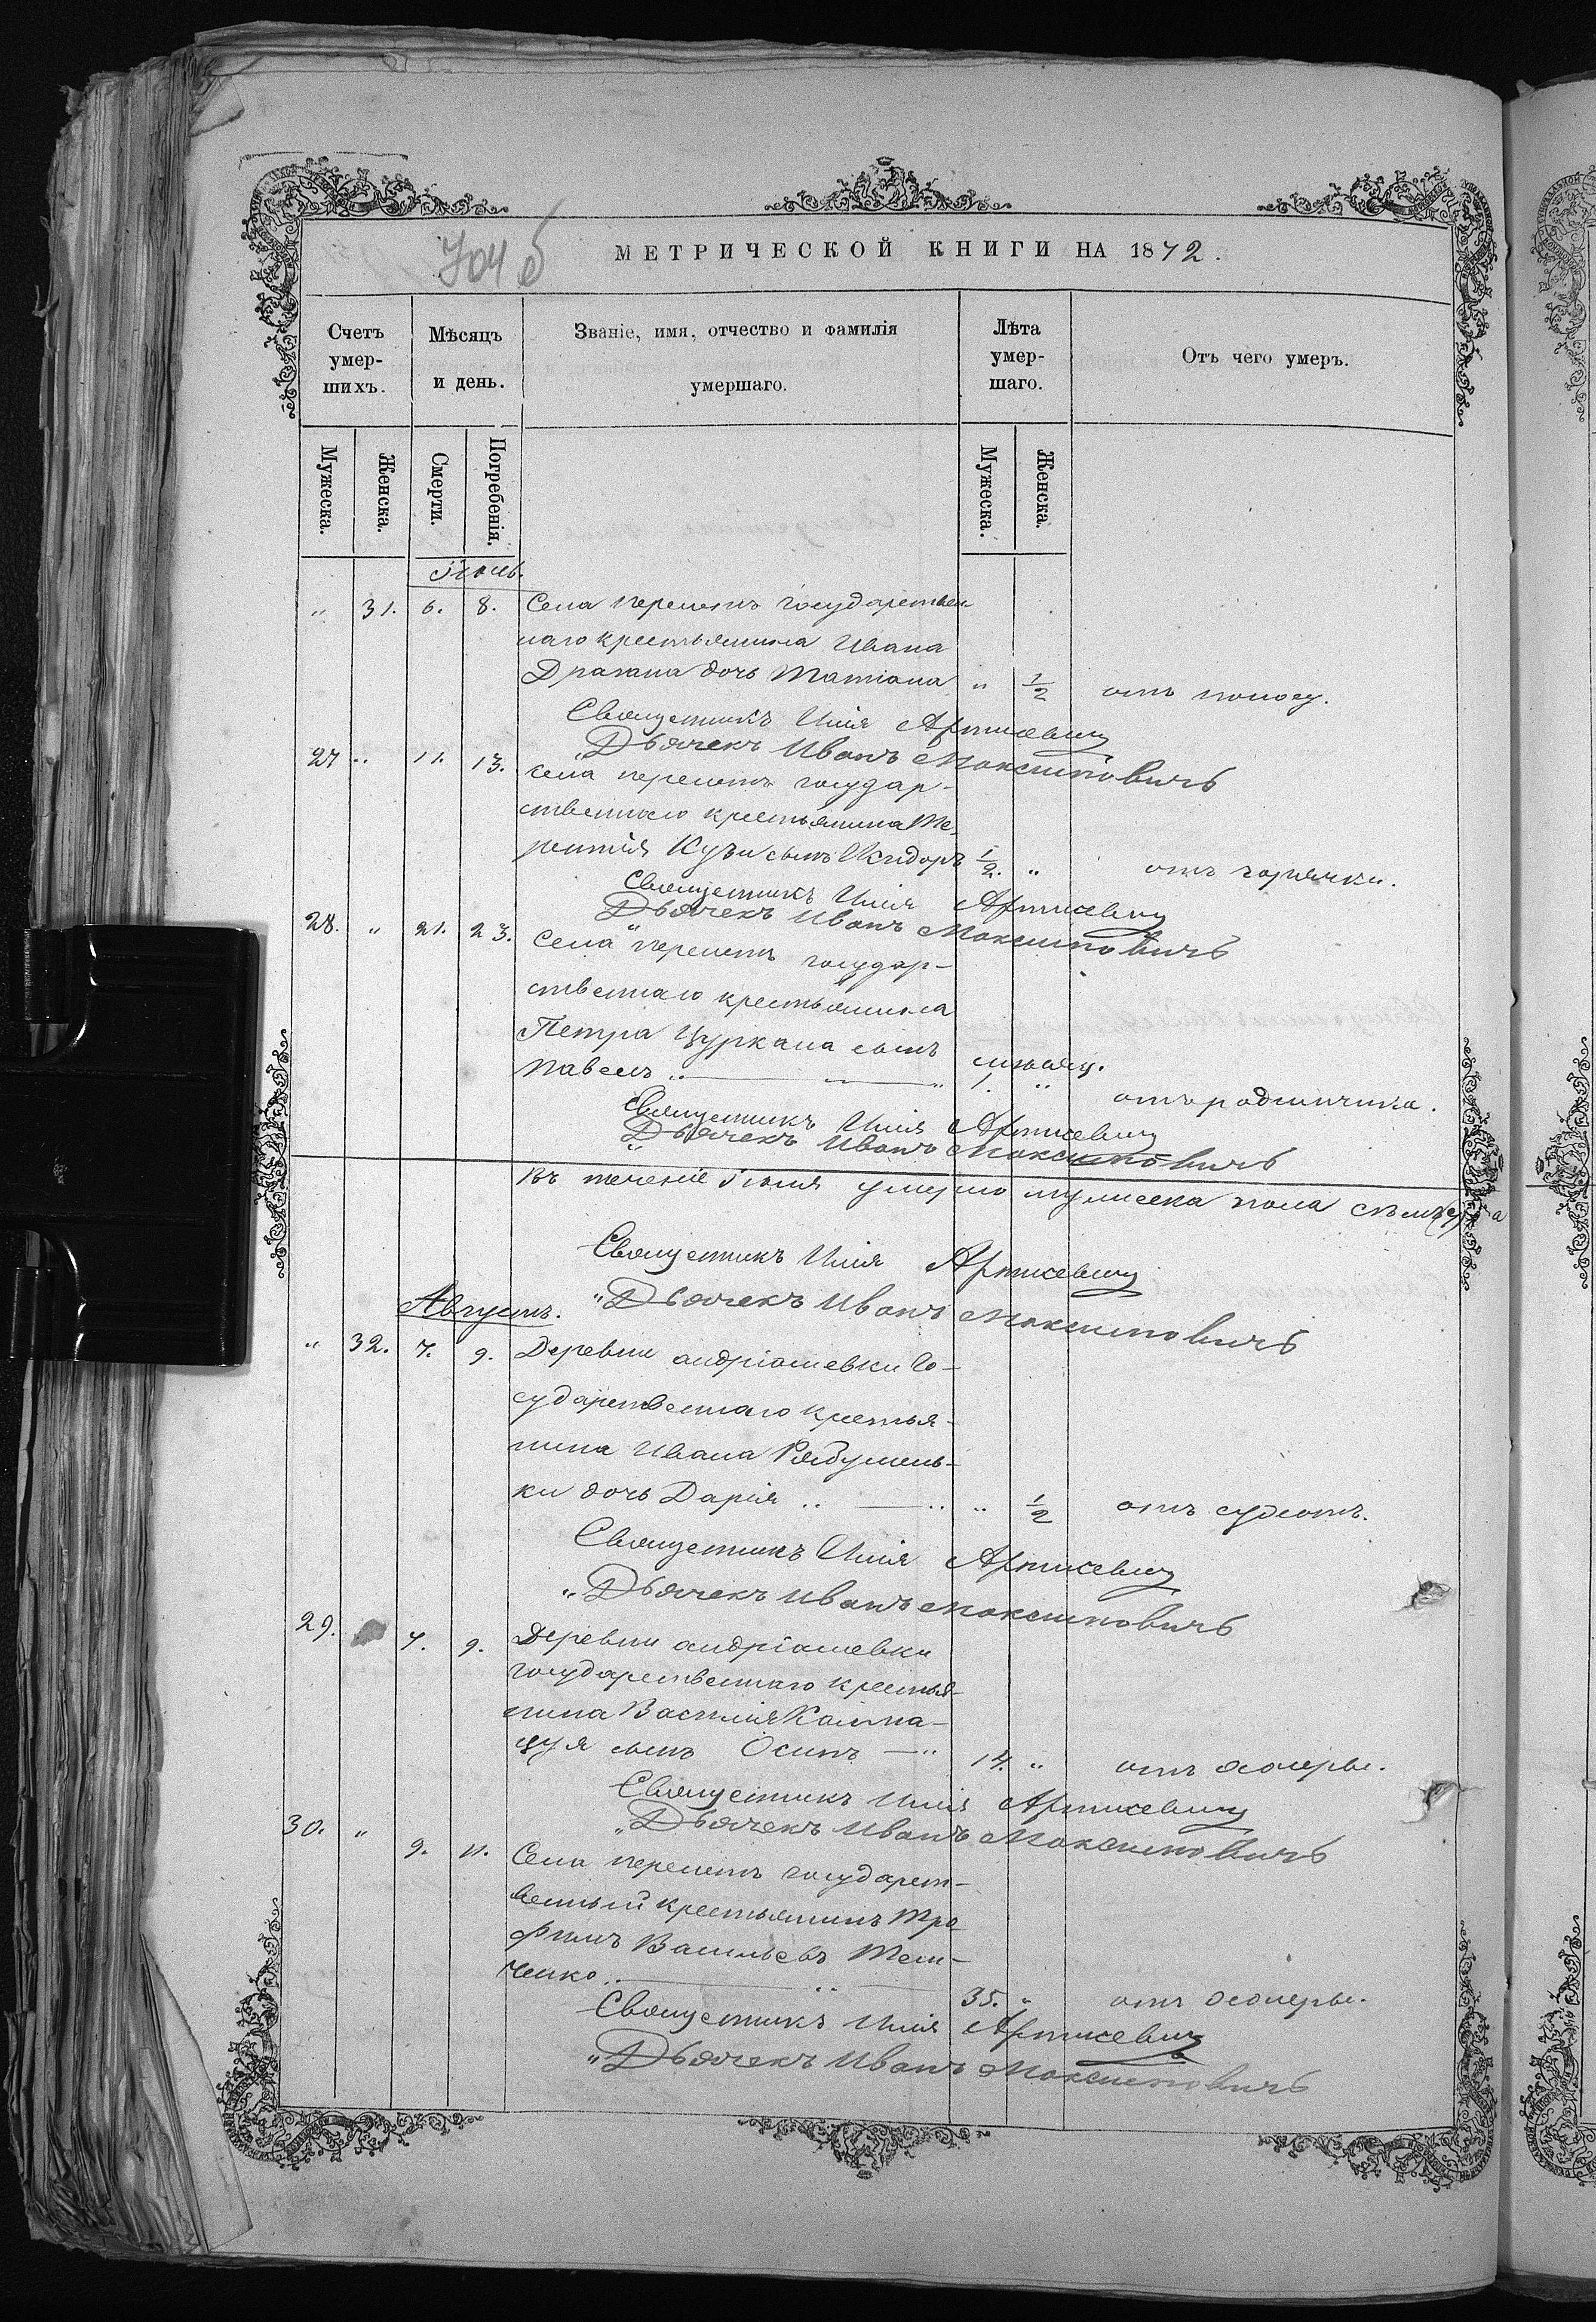 704 б
МЕТРИЧЕСКОЙ КНИГИ НА 1872.
Счетъ умер-шихъ.
Мѣсяцъ и день.
Званіе, имя, отчество и фамилія умершаго.
Лѣта умер-шаго.
Отъ чего умеръ.
Мужеска.
Женска.
Смерти.
Погребенія.
Мужеска.
Женска.
Іюль.
" 31. 6. 8. Села перелетъ государствен
наго крестьянина Ивана
Драгана дочь Татіана " 1/2 отъ поносу.
Священникъ Илія Артисевич
"Дьячекъ Иванъ Максимовичъ
27 " 11. 13. села перелетъ государ-
ственнаго крестьянина Те-
рентія Кузи сынъ Исидоръ 1/2. " отъ горячки.
Священникъ Илія Артисевич
"Дьячекъ Иванъ Максимовичъ
28. " 21. 23. Села перелетъ государ-
ственнаго крестьянина
Петра Цуркана сынъ мѣсяц.
Павелъ .. — — " 1. " отъ родимчика.
Священникъ Илія Артисевич
"Дьячекъ Иванъ Максимовичъ
Въ теченіе Іюля умерло мужеска пола
Священникъ Илія Артисевич
"Дьячекъ Иванъ Максимовичъ
Августъ.
" 32. 7. 9. Деревни андріашевки Го-
сударственнаго крестья-
нина Ивана Рябушень-
ки дочь Дарія .. — .. " 1/2 отъ судоть.
Священникъ Илія Артисевич
"Дьячекъ Иванъ Максимовичъ
29. 7. 9. Деревни андріашевки
государственнаго крестья-
нина Василія Калма-
цуя сынъ Осипъ — " 14. " отъ холеры.
Священникъ Илія Артисевич
"Дьячекъ Иванъ Максимовичъ
30. " 9. 11. Села перелетъ государст-
венный крестьянинъ Тро
фимъ Васильевъ Тем-
ченко .. — .. — 35. " отъ холеры.
Священникъ Илія Артисевич
"Дьячекъ Иванъ Максимовичъ